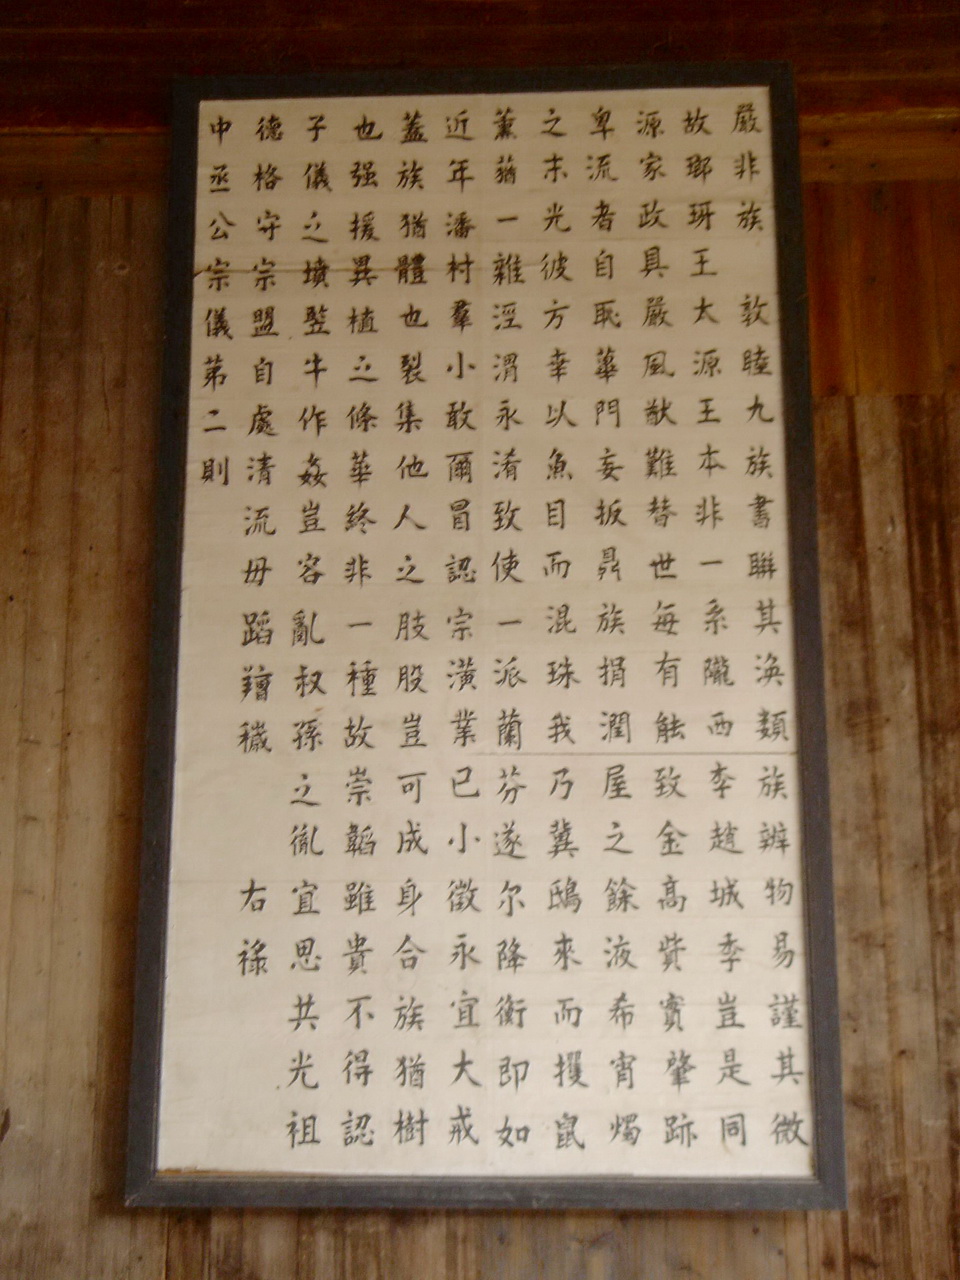 嚴非族　敦睦九族書聯其渙類族辨物易謹其微
故瑯琊王太源王本非一系隴西李趙城季豈是同
源家政具嚴風猷難替世每有能致金高貲實肇跡
卑流者自恥蓽門妄扳鼎族捐潤屋之餘液希宵燭
之末光彼方幸以魚目而混珠我乃冀鴟來而攫鼠
薰蕕一雜涇渭永淆致使一派蘭芬遂尔降衡即如
近年潘村羣小敢爾冒認宗潢業已小徵永宜大戒
蓋族猶體也裂集他人之肢股豈可成身合族猶樹
也强援異植之條華終非一種故崇韜雖貴不得認
子儀之墳豎牛作姦豈容亂叔孫之胤宜思共光祖
德格守宗盟自處清流毋蹈穢　右祿
中丞公宗儀第二則